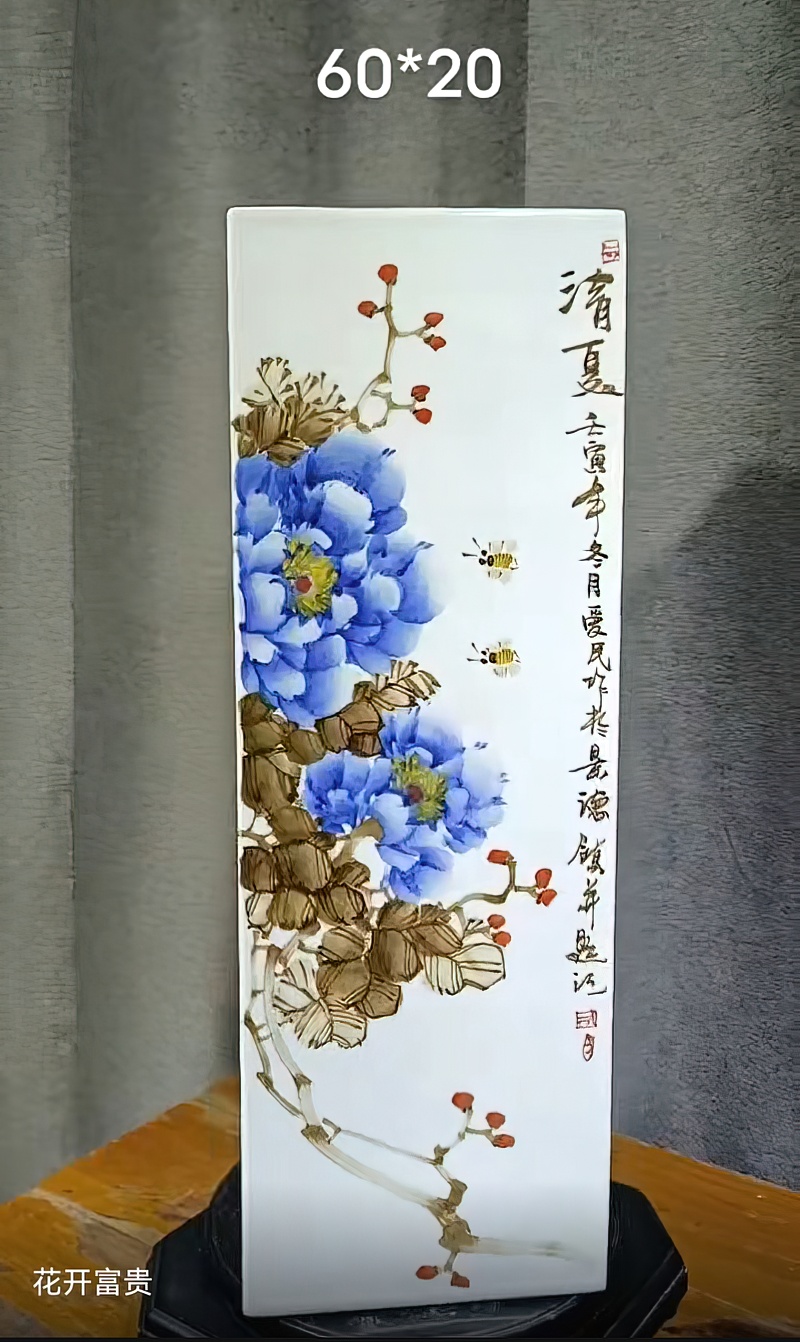 60*20
清夏
壬寅年冬月爱民作於景德镇并题记
花开富贵